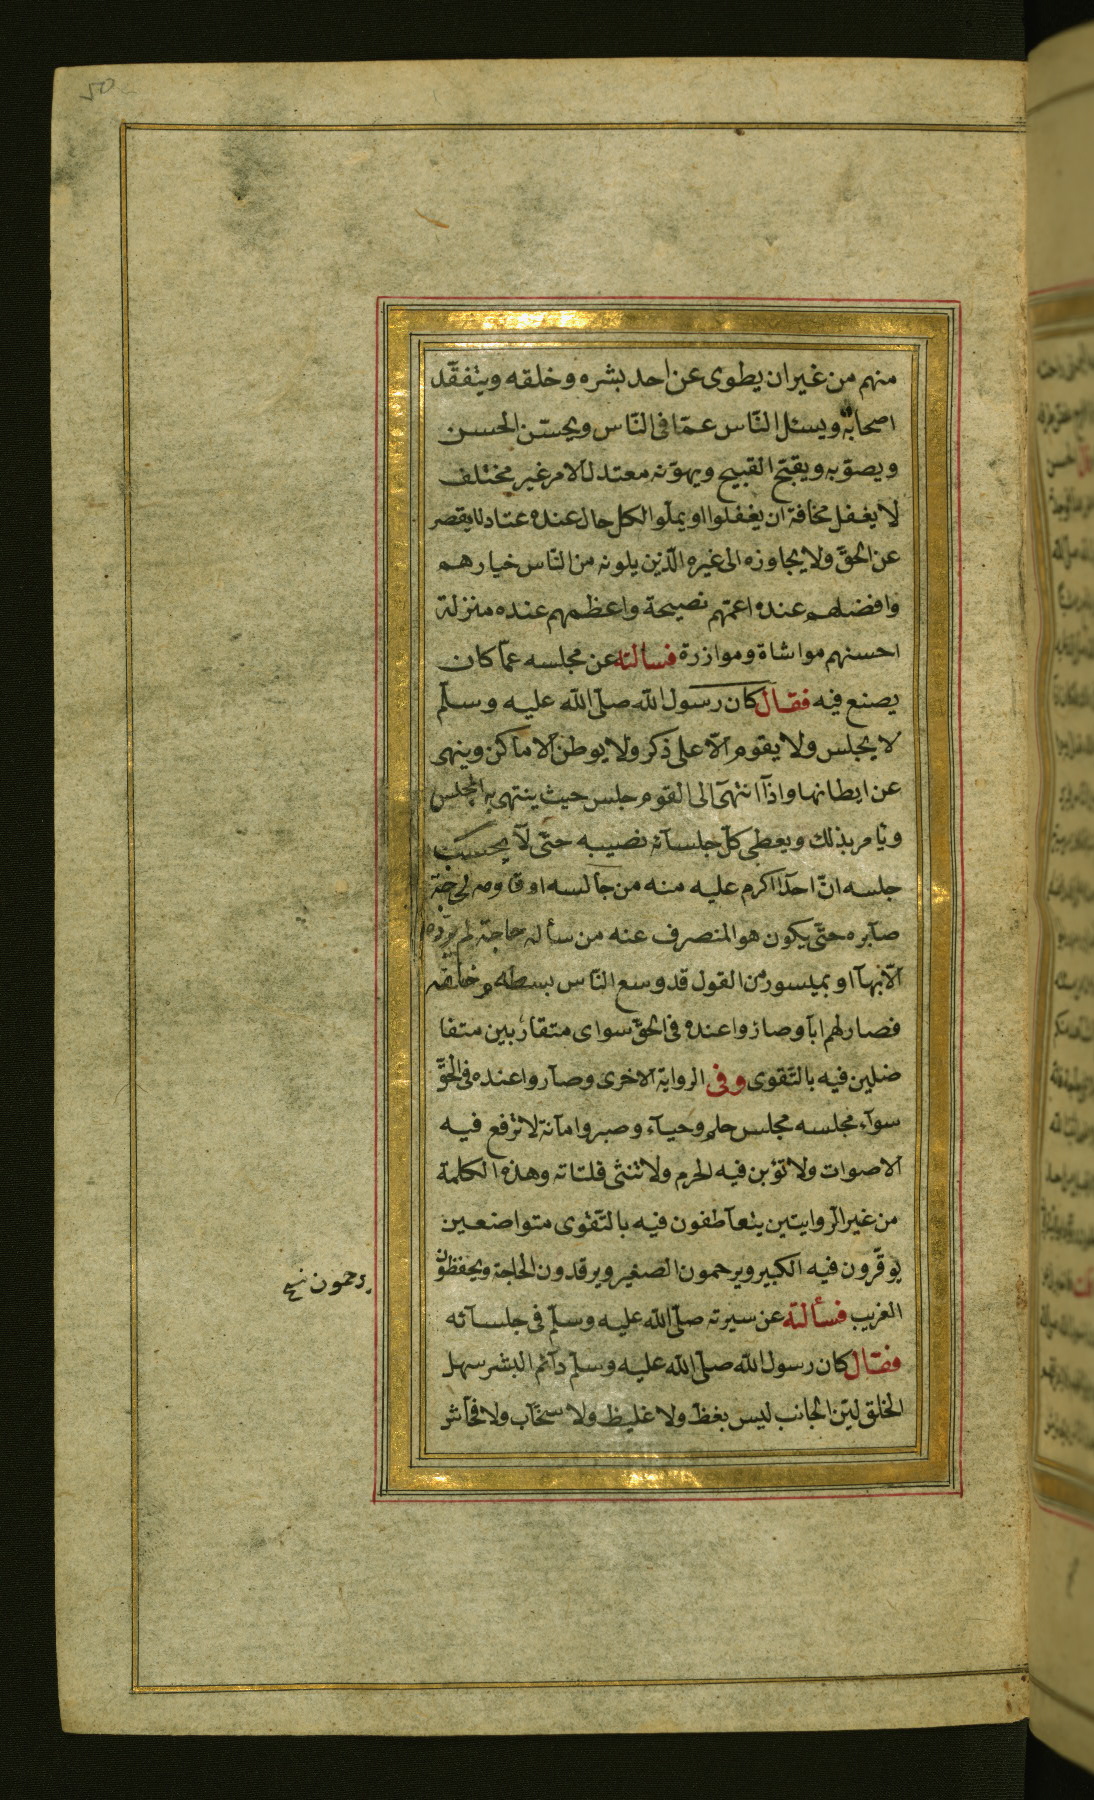 منهم من غير ان يطوى عن احد بشره وخلقه ويتفقّد
اصحابه ويسئل النّاس عمّا فى النّاس ويحسّن الحسن
ويصوّبه ويقبّح القبيح ويهوّنه معتدل الامر غير مختلف
لا يغفل مخافة ان يغفلوا او يملّوا لكل حال عنده عتاد لا يقصر
عن الحقّ ولا يجاوزه الى غيره الّذين يلونه من النّاس خيارهم
وافضلهم عنده اعمّهم نصيحة واعظمهم عنده منزلة
احسنهم مواساة وموازرة فسألته عن مجلسه عمّا كان
يصنع فيه فقال كان رسول اللّه صلّى اللّه عليه وسلّم
لا يجلس ولا يقوم الّا على ذكر ولا يوطن الاماكن وينهى
عن ايطانها واذا انتهى الى القوم جلس حيث ينتهى به المجلس
ويامر بذلك ويعطى كلّ جلسائه نصيبه حتّى لا يحسب
جليسه انّ احدا اكرم عليه منه من جالسه او قاومه لحاجة
صابره حتّى يكون هو المنصرف عنه من سأله حاجة لم يردّه
الّا بها او بميسور من القول قد وسع النّاس بسطه وخلقه
فصار لهم ابا وصاروا عنده فى الحقّ سواى متقاربين متفا
ضلين فيه بالتّقوى وفى الرواية الاخرى وصاروا عنده فى الحقّ
سوآء مجلسه مجلس حلم وحيآء وصبر وامانة لا ترفع فيه
الاصوات ولا تؤبن فيه الحرم ولا تنثى فلتاته وهذه الكلمة
من غير الرّوايتين يتعاطفون فيه بالتّقوى متواضعين
يوقّرون فيه الكبير ويرحمون الصغير ويرفدون الحاجة ويحفظون
يرحمون نسخ
الغريب فسألته عن سيرته صلّى اللّه عليه وسلّم فى جلسائه
فقال كان رسول اللّه صلّى اللّه عليه وسلّم دآئم البشر سهل
الخلق ليّن الجانب ليس بفظّ ولا غليظ ولا سخّاب ولا فحّاش